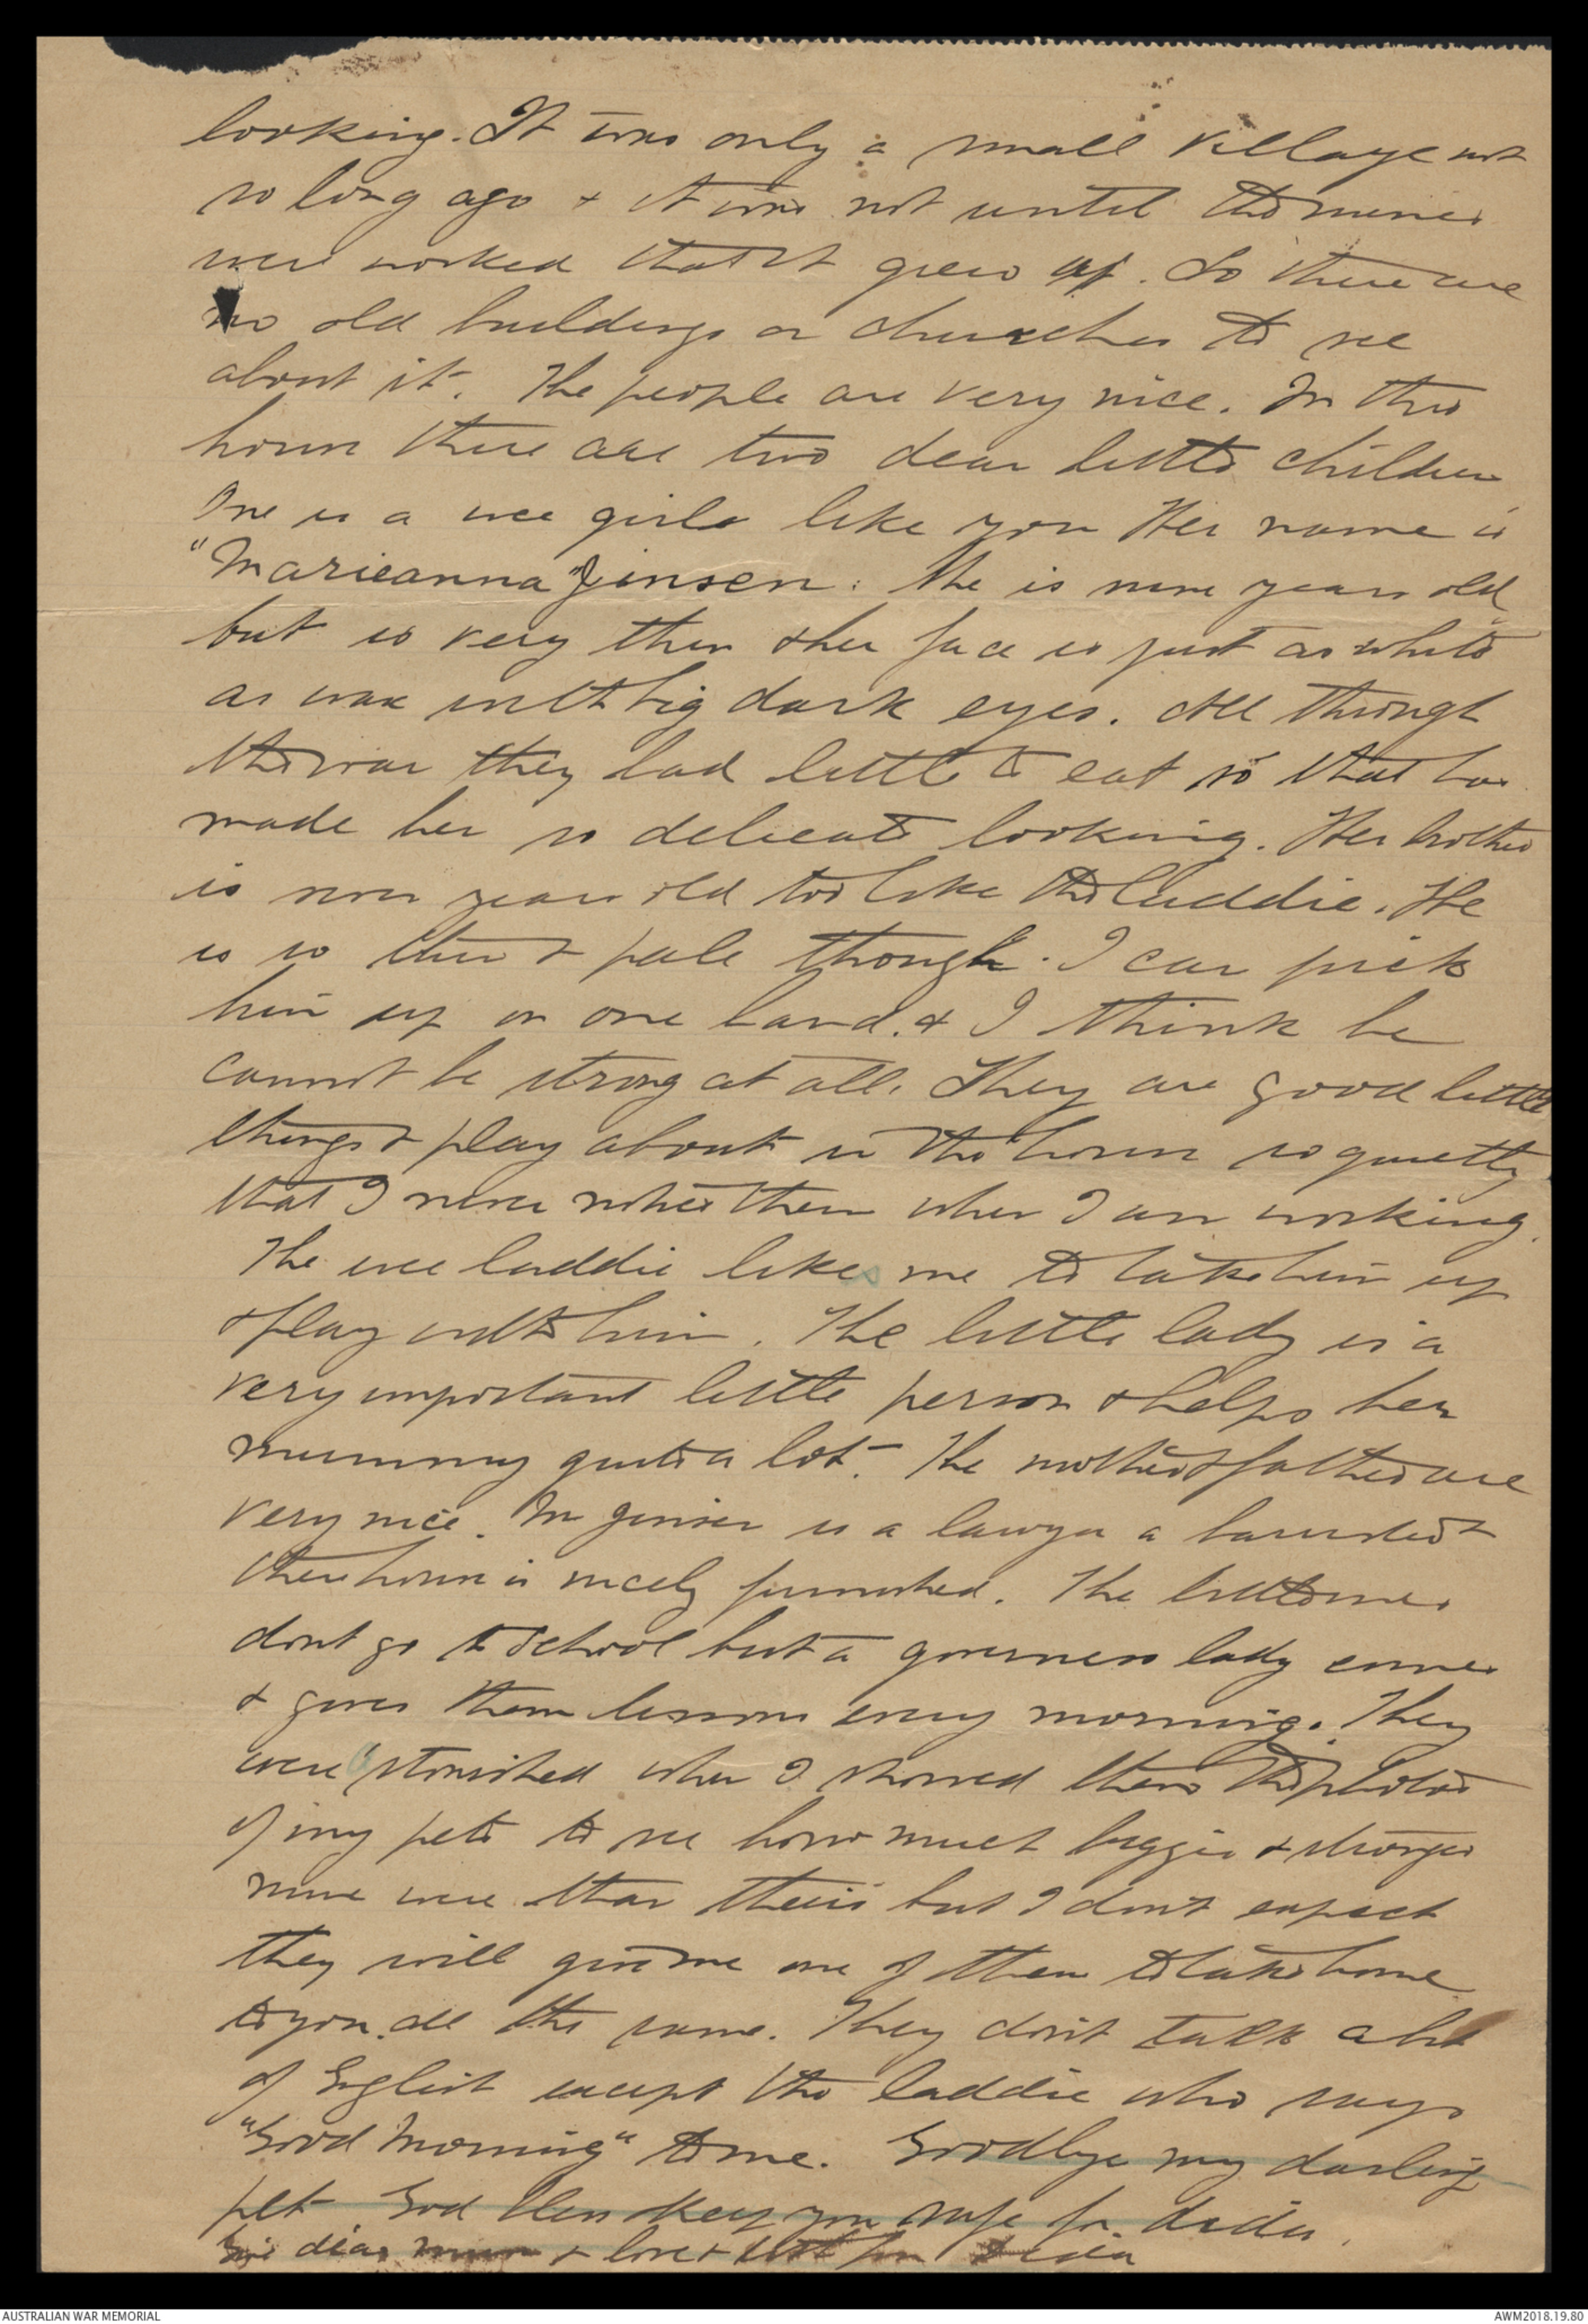 looking. It was only a small village not
so long ago & it was not until the mines
were worked that it grew up. So there are
no old buildings or churches to see
about it. The people are very nice. In this
house there are two dear little children
One is a wee girlo like you Her name is
"Marieanna" Jinsen. She is nine years old
but is very thin & her face is just as white
as wax with big dark eyes. All through
the war they had little to eat so that has
made her so delicate looking. Her brother
is years old too like the laddie. He
is so thin & pale though. I can pick
him up in one hand. & I think he
cannot be strong at all. They are good little
things & play about in the house so quietly
that I never notice them when I am working.
The wee laddie likes me to take him up
& play with him. The little lady is a
very important little person & helps her
mummy quite a lot. The mother & father are
very nice. Mr Jinsen is a lawyer a barrister &
there house is nicely furnished. The little ones
dont go to school but a governess lady comes
& gives them lessons every morning. They
were 'stonished when I showed them the photos
of my pets to see how much bigger & stronger
mine were than theirs but I don't expect
they will give me one of them to take home
to you all the same. They don't talk a bit
of English except the laddie who says
"Good Morning" to me. Goodbye my darling
pet. God bless & keep you safe for dida.
Give dear mum & love & from Dida